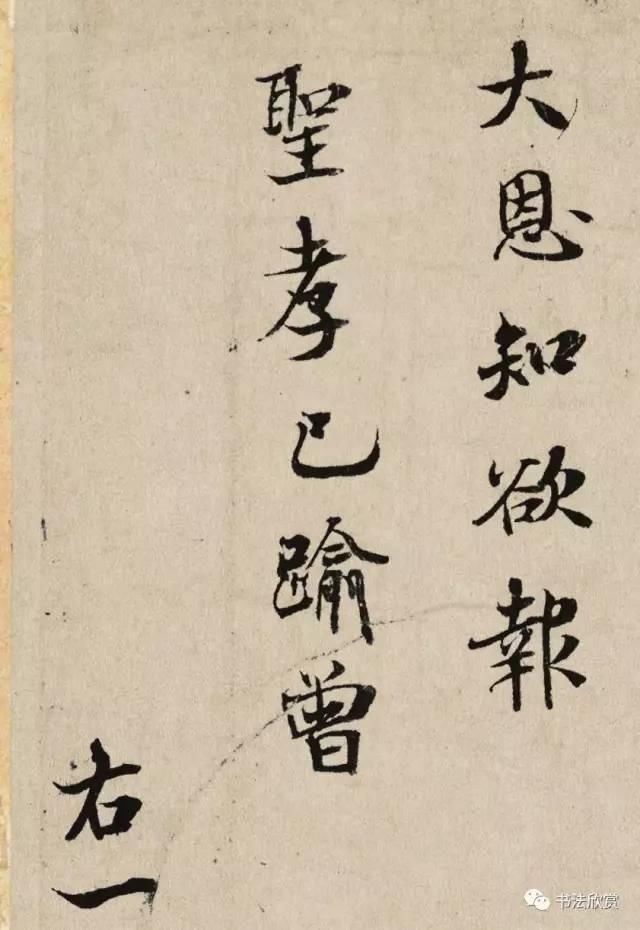 大恩知欲報
聖孝已踰曾
右一
书法欣赏